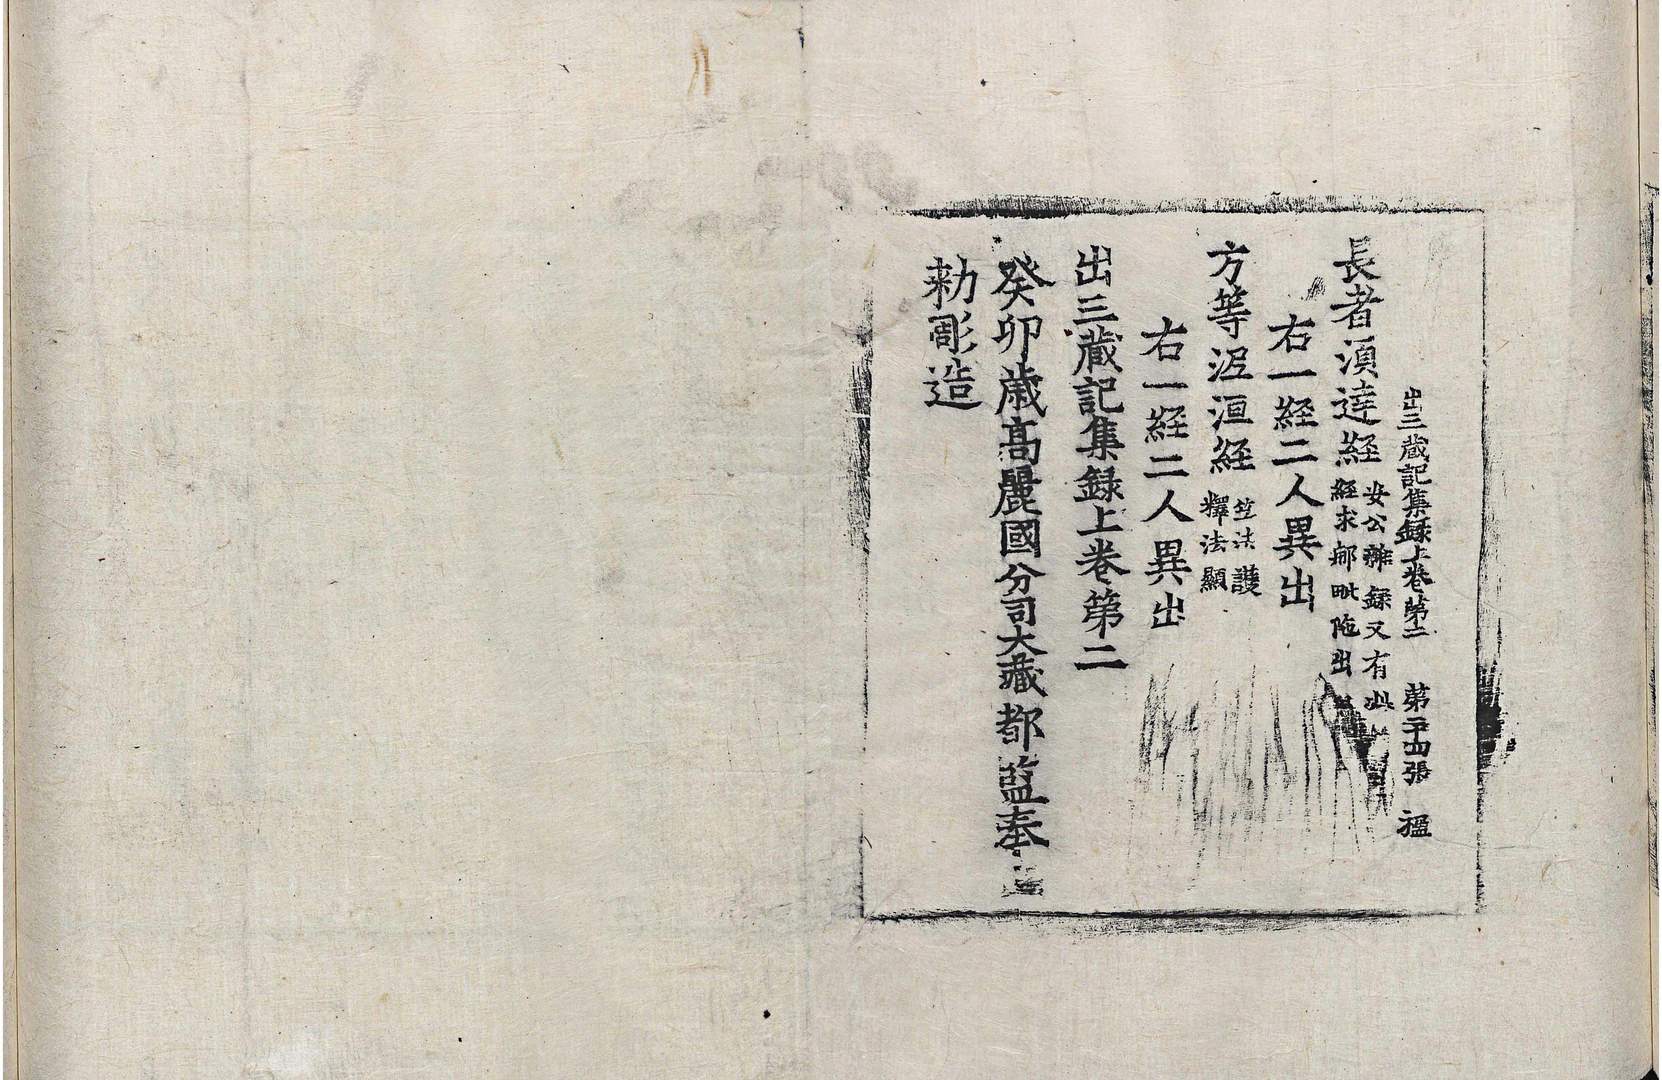 出三藏記集錄上卷第二 第二十四張 榲
長者須達經 安公雜錄又有此
經求那毗陁出
右一經二人異出
方等泥洹經 竺法護
釋法顯
右一經二人異出
出三藏記集錄上卷第二
癸卯歲高麗國分司大藏都監奉
勑彫造